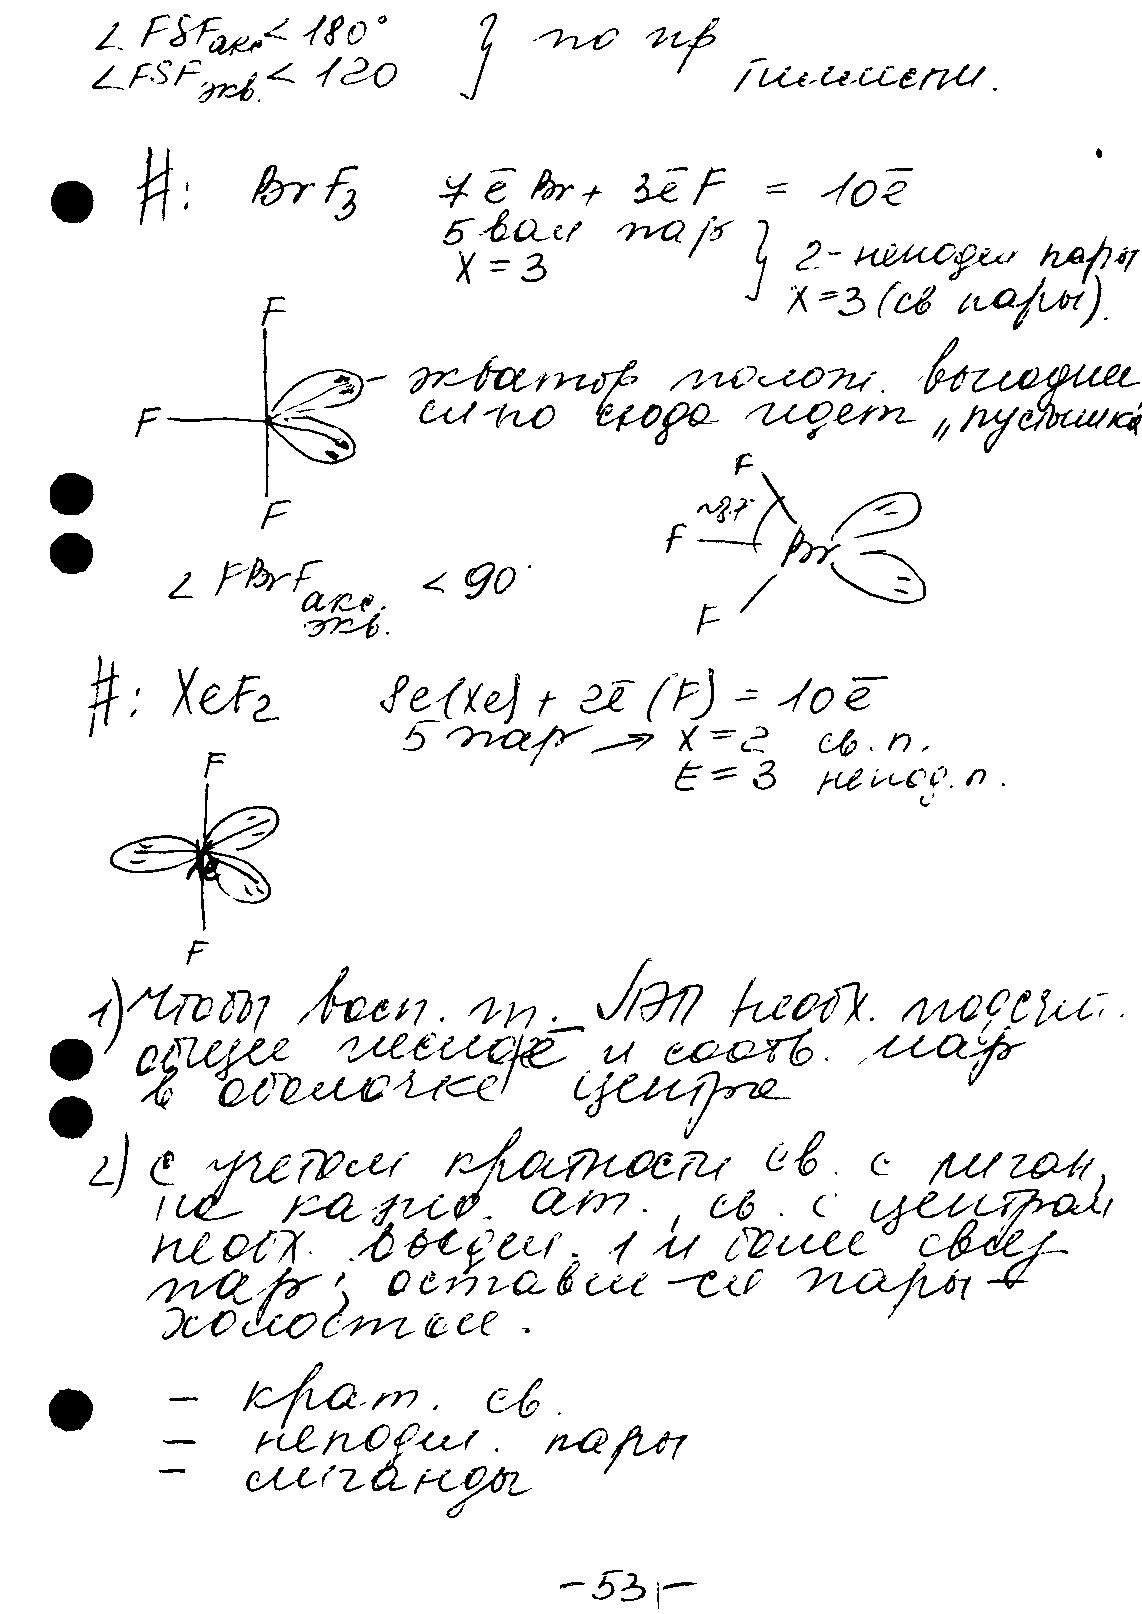 ∠ FSF акс < 180°  } по пр Гиллеспи.
∠ FSF экв. < 120
#: BrF3  7ē Br + 3ē F = 10ē
5 вал пар } 2 - неподел пары
X = 3  X = 3 (св пары).
F
экватор полож. выгоднее
F
сл-но сюда идет „пустышка"
F
F
~87°
F Br
F
∠ FBrF акс. экв. < 90°
#: XeF2  8e(Xe) + 2ē (F) = 10ē
5 пар → X = 2 св. п.
E = 3 непод. п.
F
Xe
F
1) Чтобы восп. т. ЛЭП необх. подсчит.
общее число ē и соотв. пар
в оболочке центра
2) с учетом кратности св. с лиган,
на кажд. ат., св. с центром
необх. выдел. 1 и более связ
пар; оставш-ся пары -
холостые.
- крат. св.
- неподел. пары
- лиганды
- 53 -